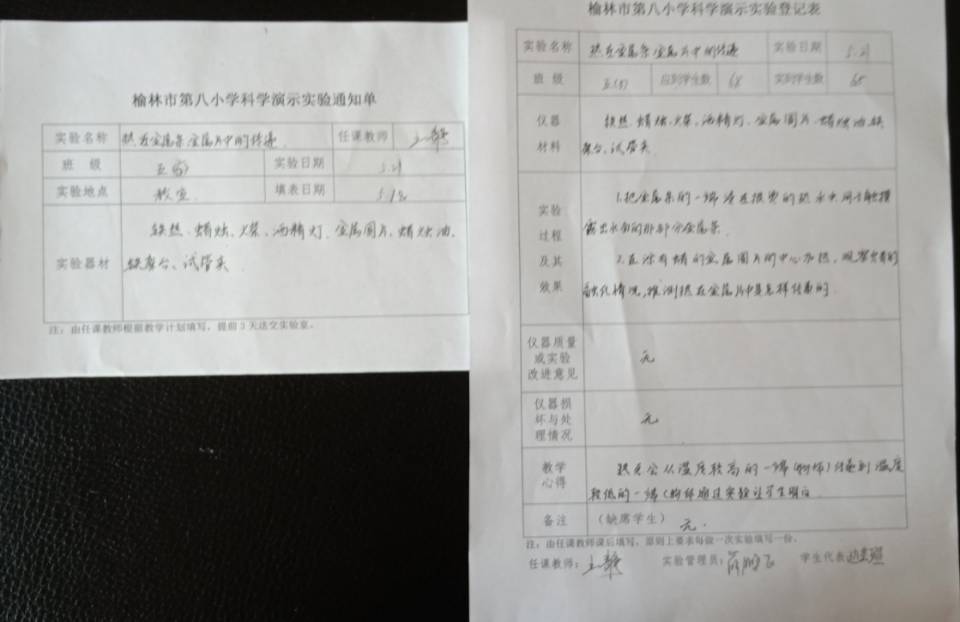 榆林市第八小学科学演示实验通知单
实验名称 热在金属条金属片中的传递 任课教师
班 级 实验日期 5.21
实验地点 教室 填表日期 5.18
实验器材 铁丝、蜡烛、火柴、酒精灯、金属圆片、蜡烛油、
铁架台、试管夹
注：由任课教师根据教学计划填写，提前3天送交实验室。
榆林市第八小学科学演示实验登记表
实验名称 热在金属条金属片中的传递 实验日期 5.21
班 级 应到学生数 68 实到学生数
仪器材料 铁丝、蜡烛、火柴、酒精灯、金属圆片、蜡烛油、铁
架台、试管夹
实验过程及其效果 1.把金属条的一端浸在很烫的热水中,用手触摸
露出水面的那部分金属条.
2.在涂有蜡的金属圆片的中心加热,观察蜡的
融化情况,推测热在金属片中是怎样传递的.
仪器质量或实验改进意见 无
仪器损坏与处理情况 无
教学心得 热是会从温度较高的一端(物体)传递到温度
较低的一端(物体 通过实验让学生明白
备注 （缺席学生） 无.
注：由任课教师课后填写，原则上要求每做一次实验填写一份。
任课教师： 实验管理员： 学生代表